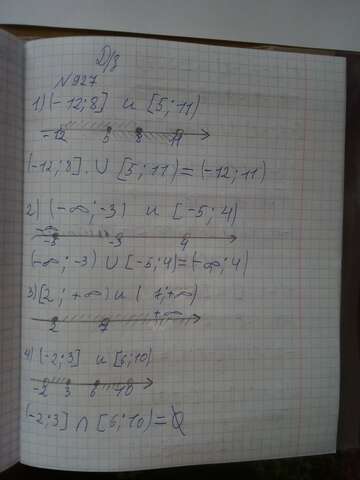 Д/з
№927
1) (-12; 8] и [5; 11)
-12 5 8 11
(-12; 8] . ∪ [5; 11) = (-12; 11)
2) (-∞; -3) и [-5; 4)
-5 -3 4
(-∞; -3) ∪ [-5; 4) = (-∞; 4)
3) [2; +∞) и (7; +∞)
2 7 +∞
4) (-2; 3] и [6; 10)
-2 3 6 10
(-2; 3] ∩ [6; 10) = ∅